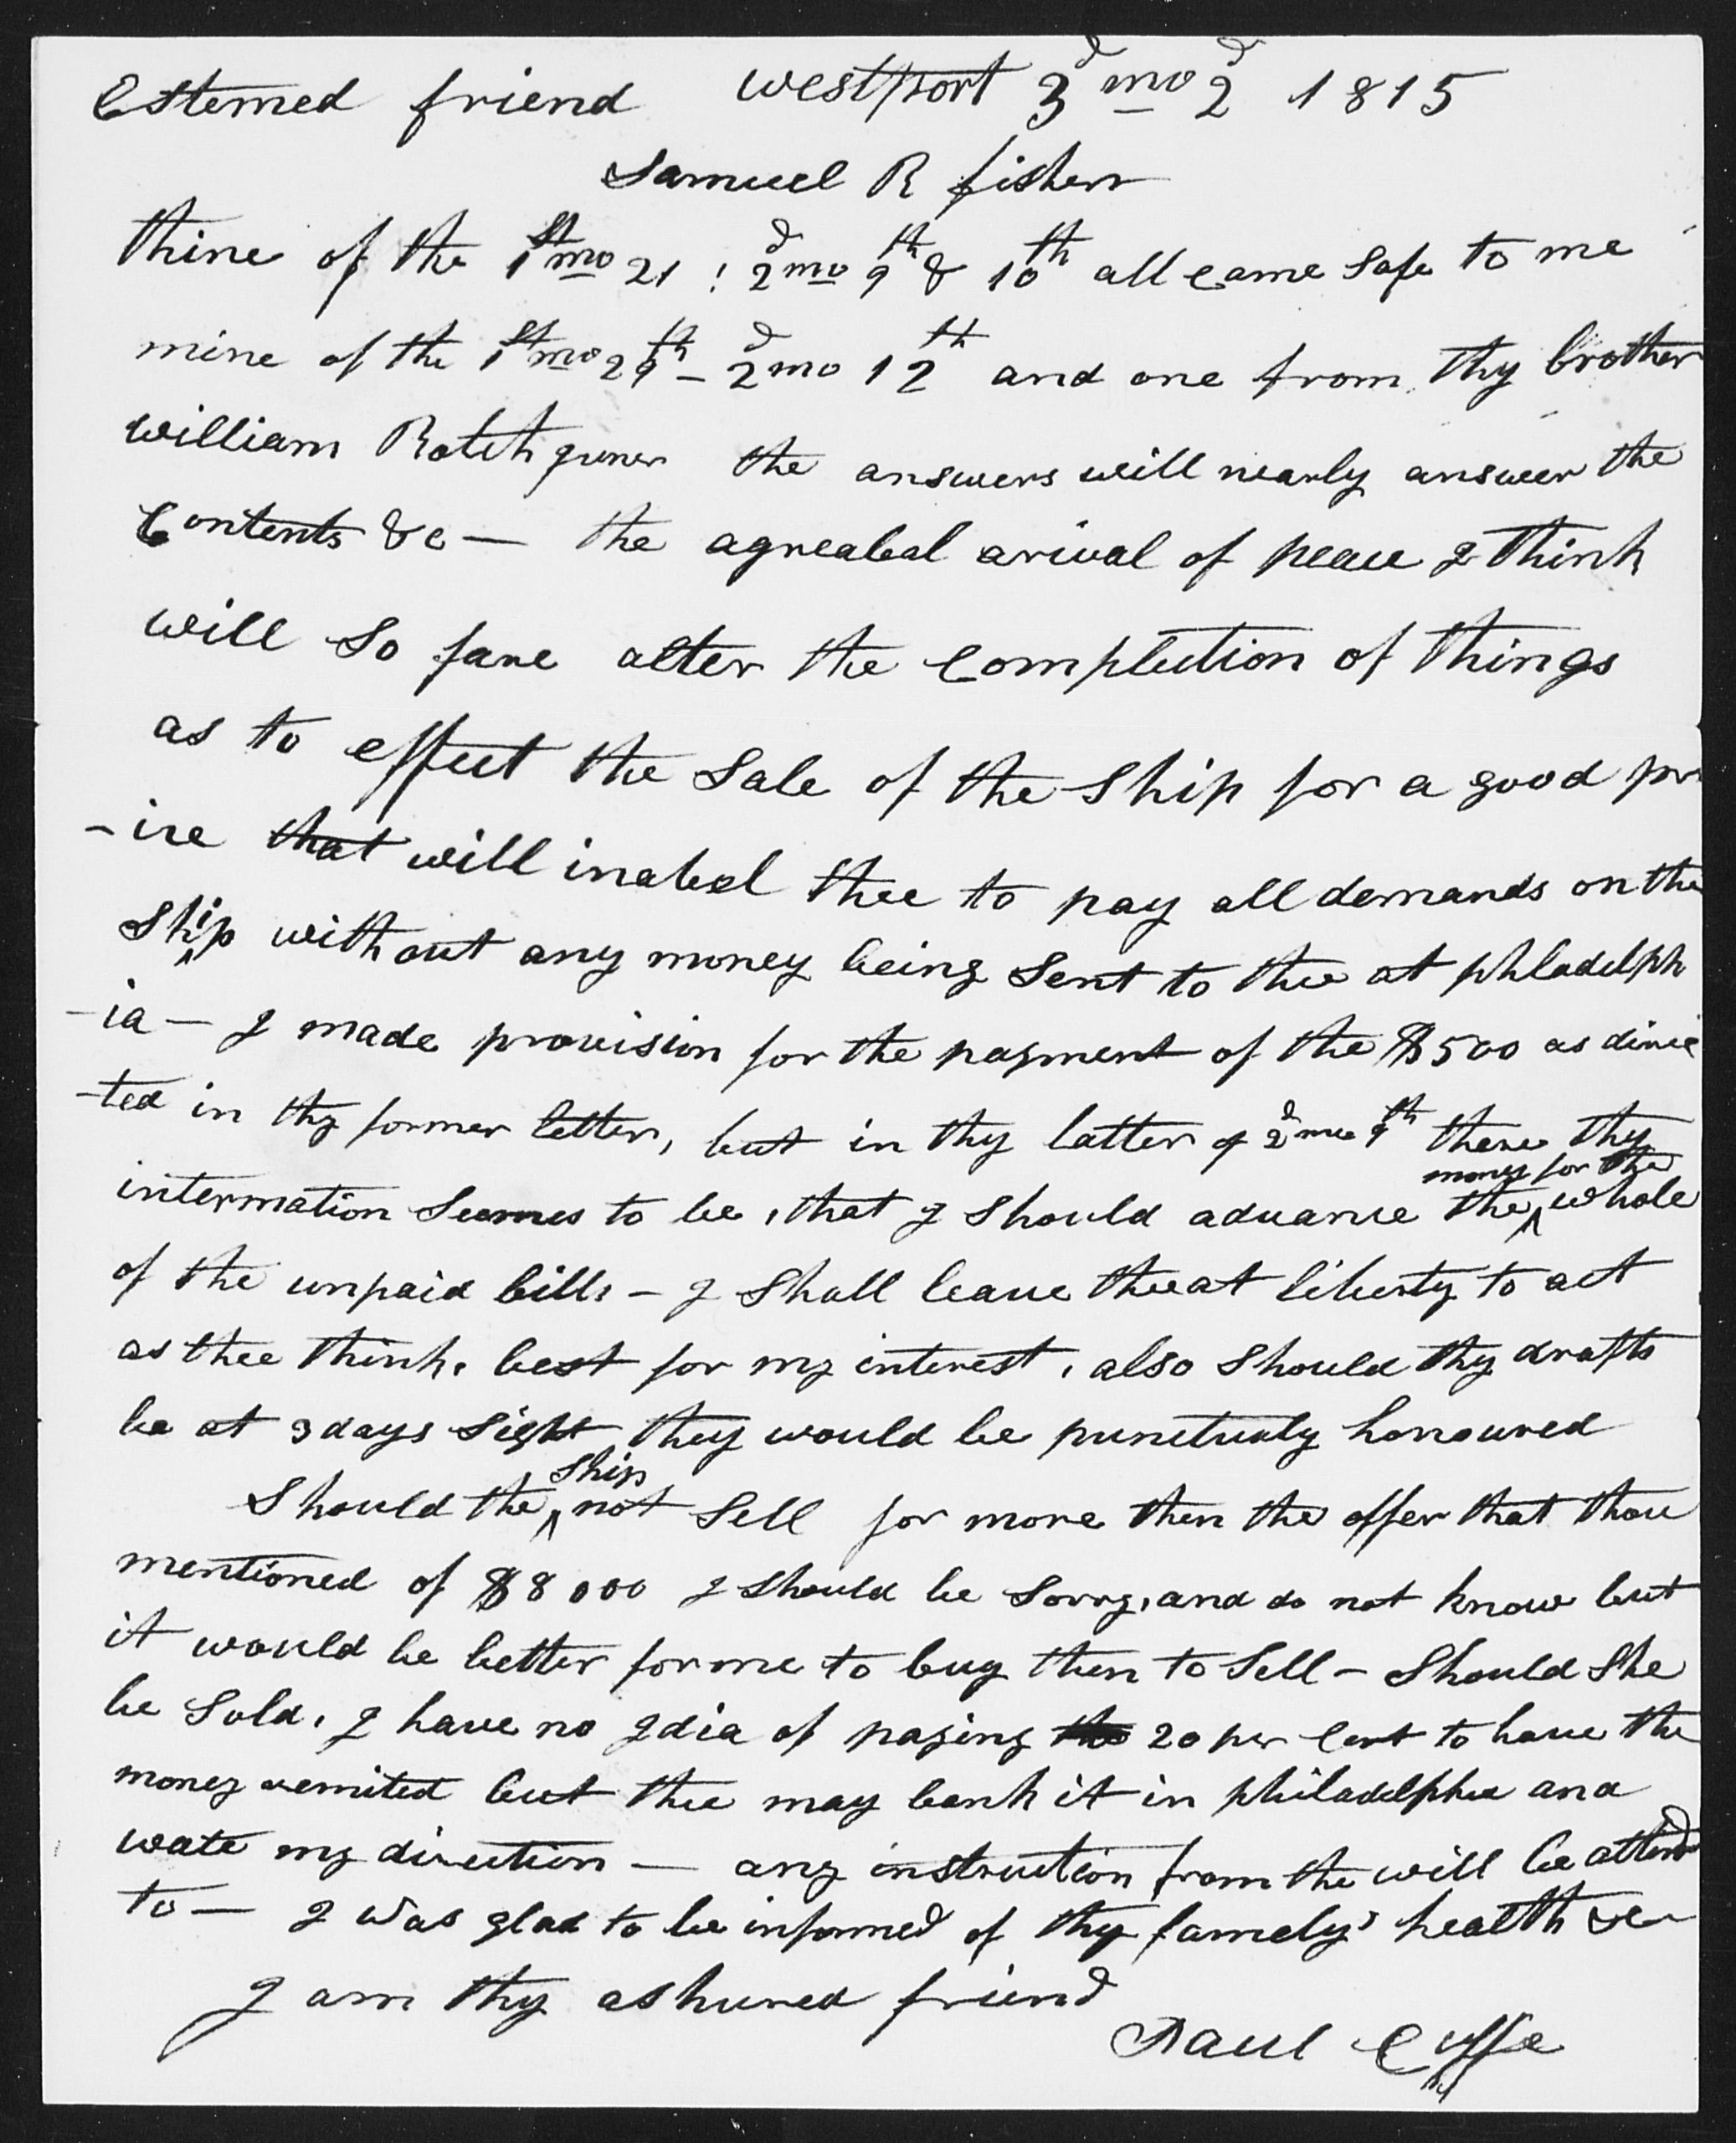 Estemed friend westport 3d mo 2d 1815
Samuel R fisher
thine of the 1st mo 21 : 2d mo 9th & 10th all came Safe to me
mine of the 1st mo 29th - 2d mo 12th and one from thy brother
william Rotch juner the answers will nearly answer the
Contents &c — the agreabel arival of peace I think
will So fare alter the Complection of things
as to effect the Sale of the Ship for a good pr
-ice that will inabel thee to pay all demands on the
Ship without any money being Sent to thee at phladelph
-ia — I made provision for the payment of the $500 as direc
-ted in thy former letter, but in thy latter of 2d mo 9th there thy
money for the
intermation Seemes to be, that I Should advance the ^ whole
of the unpaid bills - I Shall leave thee at liberty to act
as thee thinks best for my interest, also Should thy drafts
be at 3 days Sight they would be punctualy honoured
Ship
Should the ^ not Sell for more then the offer that thou
mentioned of $8000 I Should be Sorry, and do not know but
it would be better for me to buy then to Sell - Should She
be Sold, I have no Idia of paying the 20 per Cent to have the
money remited but thee may bank it in philadelphia and
wate my direction — any instruction from the will be attend
to — I was glad to be informed of thy famely's health &c
I am thy ashured friend
Paul Cuffe